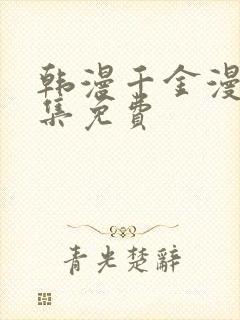 韩漫千金漫
集免费
青光楚辭